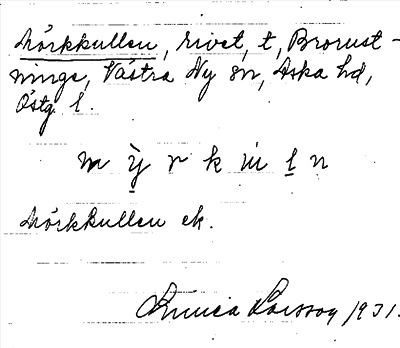 Mörkkullen, rivet, t, Brorust-
ninge, Västra Ny sn, Aska hd,
Östg. l.
m ỳ̠ r k ŵ l̠ n
Mörkkullen ek.
Linnea Larsson 1931.